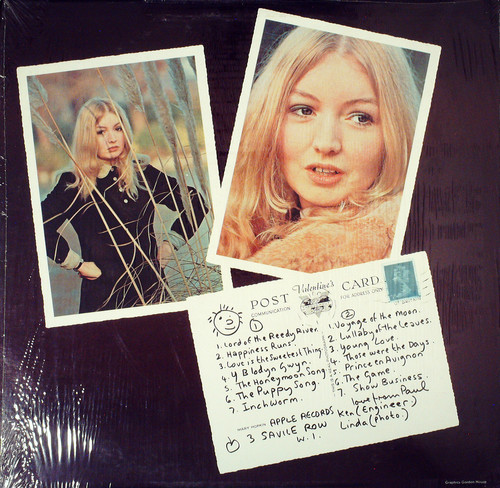 POST Valentine's CARD
COMMUNICATION
FOR ADDRESS ONLY
①
1. Lord of the Reedy River.
2. Happiness Runs.
3. Love is the Sweetest Thing
4. Y Blodyn Gwyn.
5. The Honeymoon Song
6. The Puppy Song.
7. Inchworm.
②
1. Voyage of the Moon.
2. Lullaby of the Leaves.
3. Young Love.
4. Those were the Days.
5. Prince en Avignon
6. The Game.
7. Show Business.
love from Paul
Ken (Engineer)
Linda (photo.)
MARY HOPKIN
APPLE RECORDS
3 SAVILE ROW
W.1.